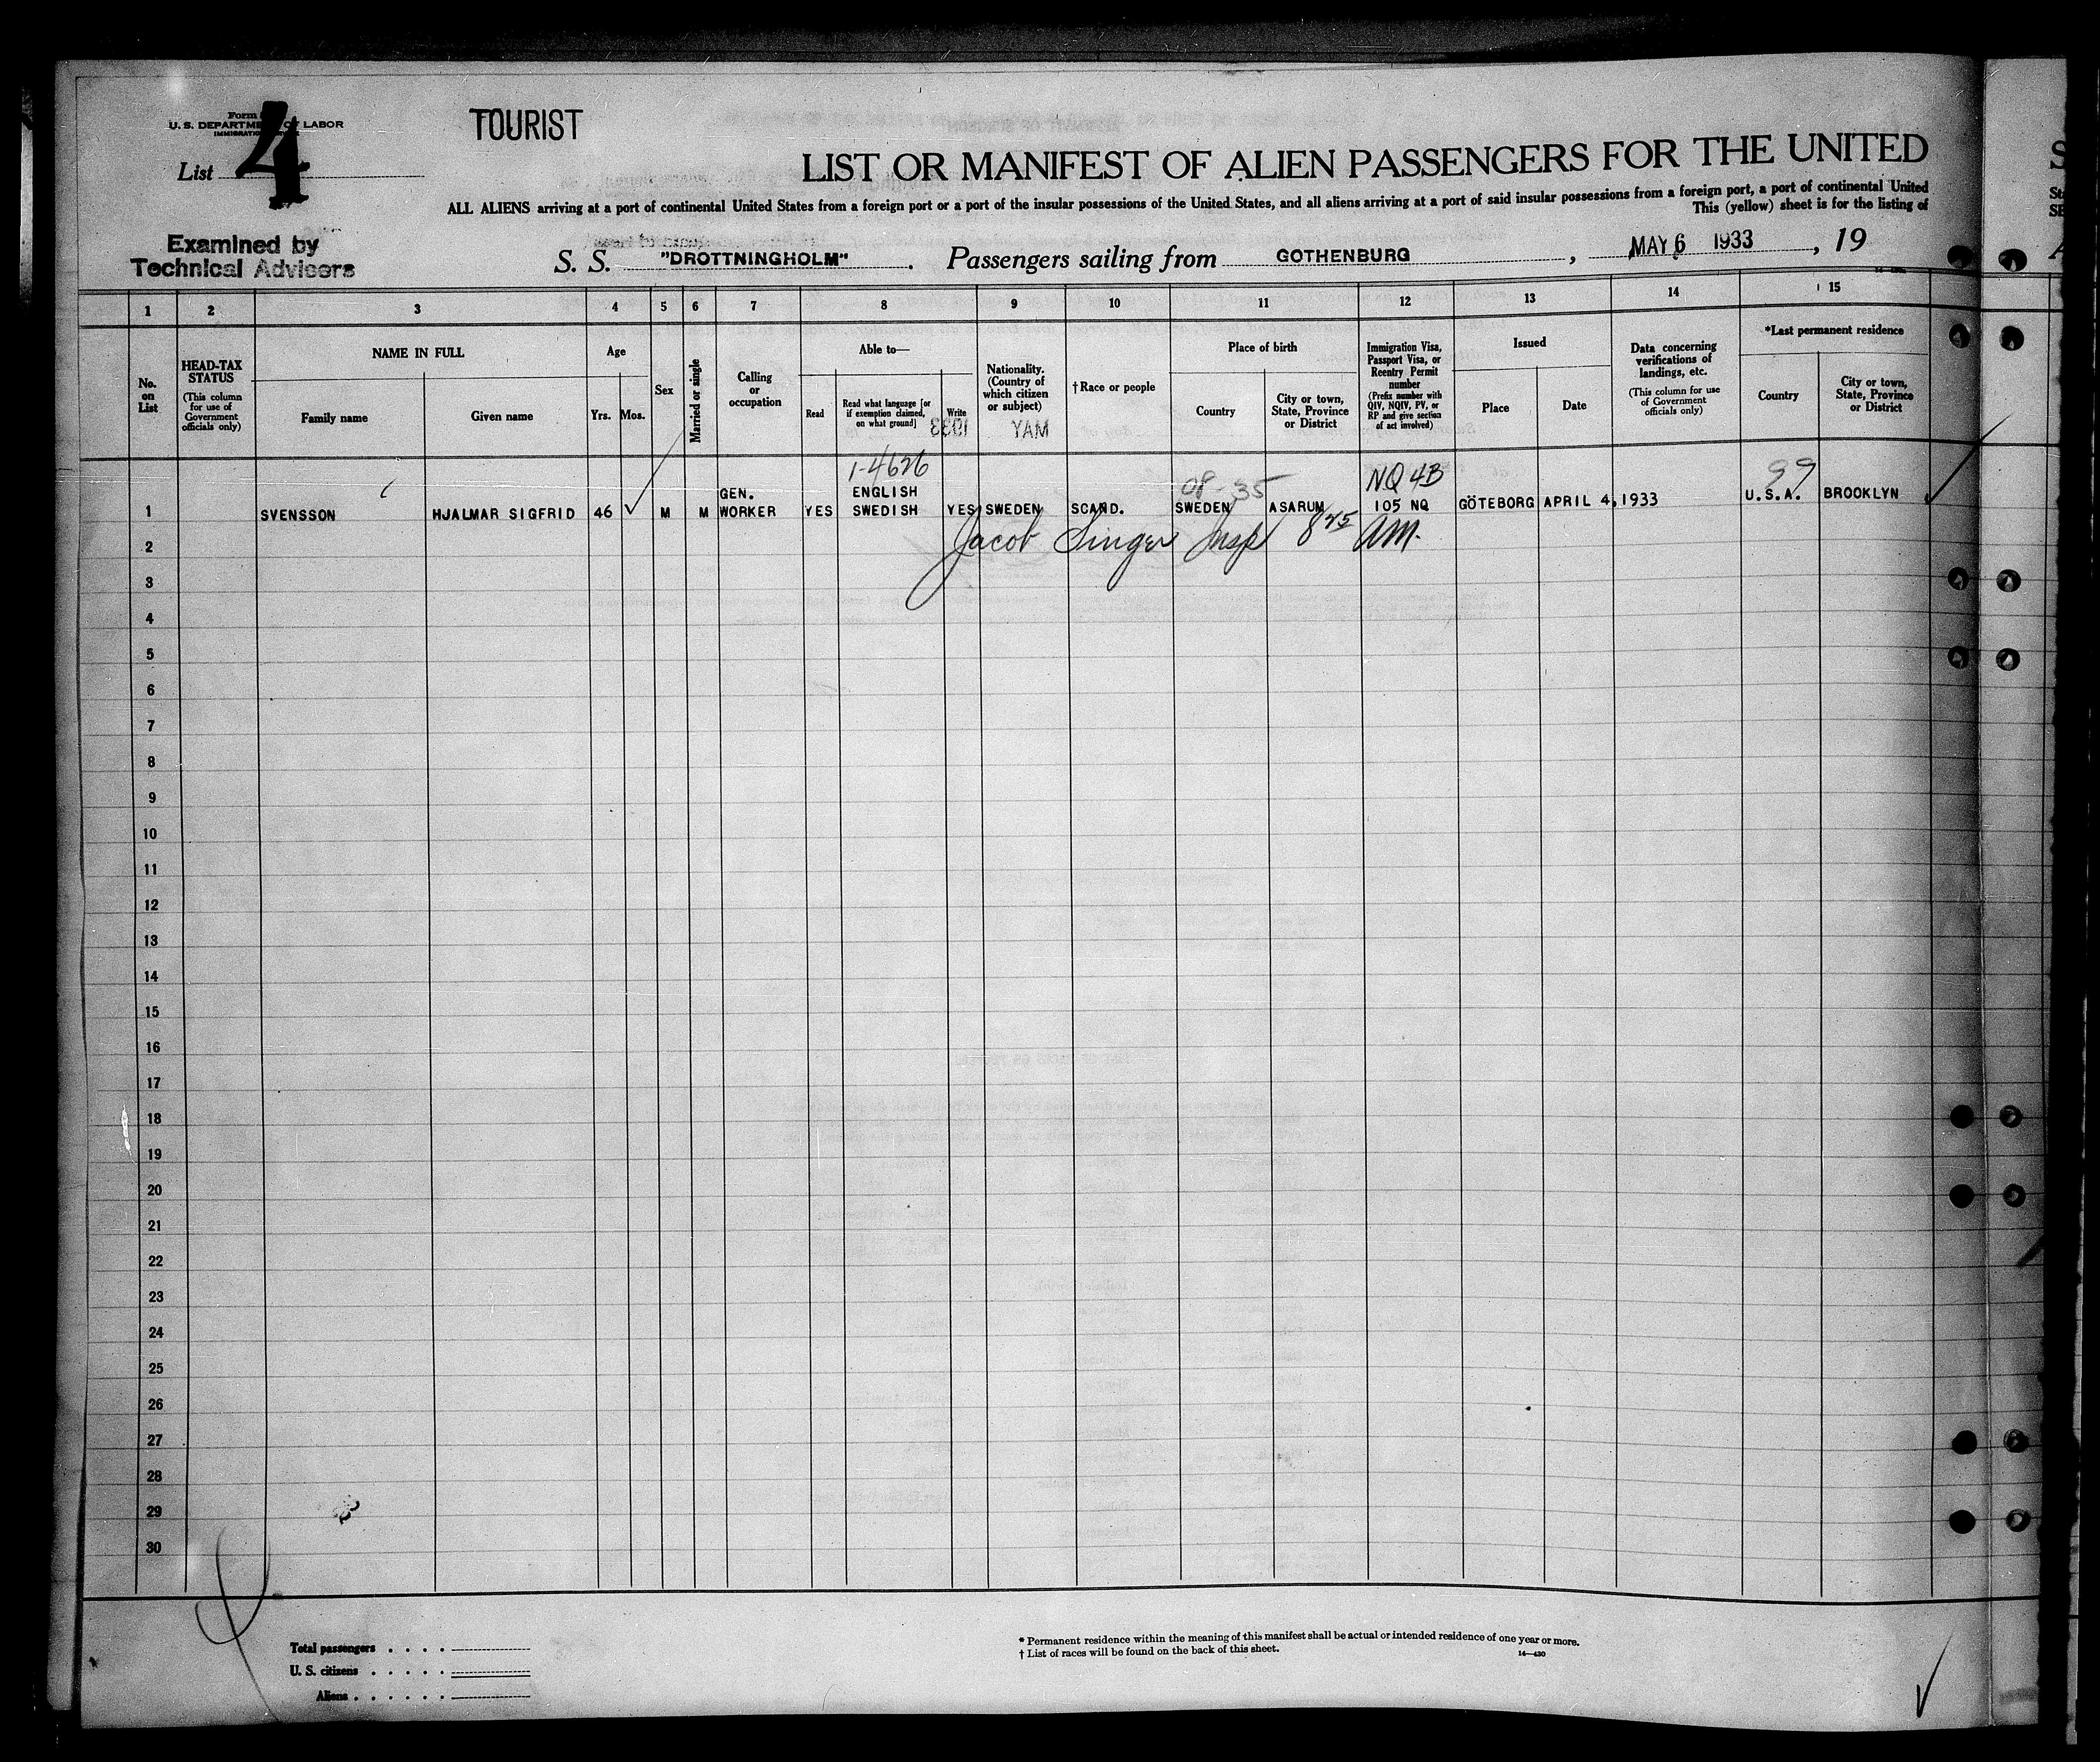 Form
U. S. DEPARTMENT OF LABOR
IMMIGRATION
List 4
TOURIST
LIST OR MANIFEST OF ALIEN PASSENGERS FOR THE UNITED
ALL ALIENS arriving at a port of continental United States from a foreign port or a port of the insular possessions of the United States, and all aliens arriving at a port of said insular possessions from a foreign port, a port of continental United
This (yellow) sheet is for the listing of
Examined by
Technical Advisers
S. S. "DROTTNINGHOLM" . Passengers sailing from GOTHENBURG , MAY 6 1933 , 19
1 2 3 4 5 6 7 8 9 10 11 12 13 14 15
No. on List
HEAD-TAX STATUS (This column for use of Government officials only)
NAME IN FULL
Family name
Given name
Age
Yrs.
Mos.
Sex
Married or single
Calling or occupation
Able to—
Read
Read what language [or if exemption claimed, on what ground]
Write
Nationality. (Country of which citizen or subject)
†Race or people
Place of birth
Country
City or town, State, Province or District
Immigration Visa, Passport Visa, or Reentry Permit number (Prefix number with QIV, NQIV, PV, or RP and give section of act involved)
Issued
Place
Date
Data concerning verifications of landings, etc. (This column for use of Government officials only)
*Last permanent residence
Country
City or town, State, Province or District
MAY 1933
1-4626
08-35
NQ 4B
99
1 SVENSSON HJALMAR SIGFRID 46 M M GEN. WORKER YES ENGLISH SWEDISH YES SWEDEN SCAND. SWEDEN ASARUM 105 NQ GÖTEBORG APRIL 4, 1933 U.S.A. BROOKLYN
2 Jacob Singer Insp 8 25 AM.
3
4
5
6
7
8
9
10
11
12
13
14
15
16
17
18
19
20
21
22
23
24
25
26
27
28
29
30
Total passengers . . . .
U. S. citizens . . . . .
Aliens . . . . . .
* Permanent residence within the meaning of this manifest shall be actual or intended residence of one year or more.
† List of races will be found on the back of this sheet.
14—430